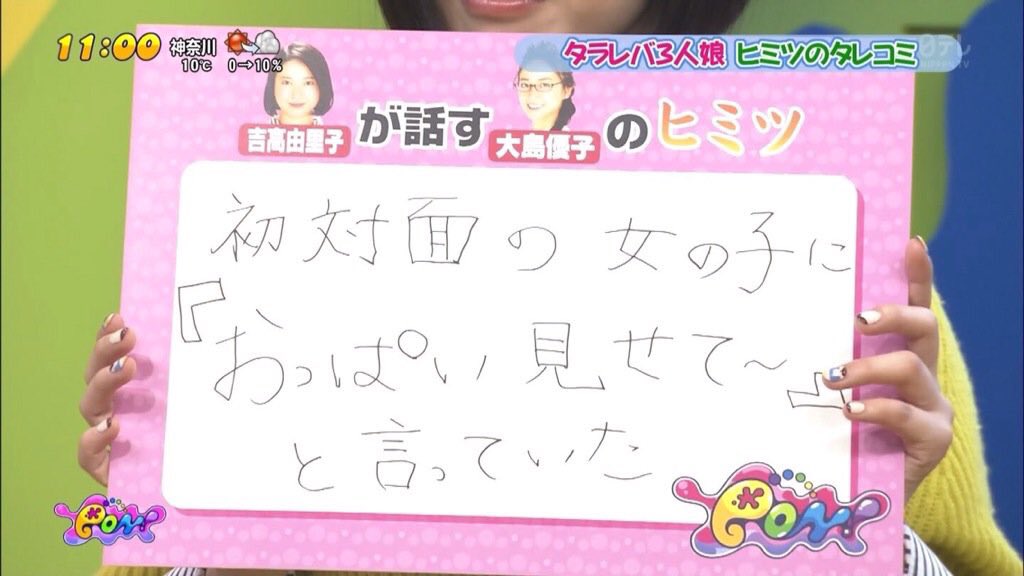 11:00 神奈川
10℃ 0→10%
タラレバ3人娘 ヒミツのタレコミ
日テレ
吉高由里子 が話す 大島優子 のヒミツ
初対面の女の子に
『おっぱい見せて〜』
と言っていた
PON!
PON!